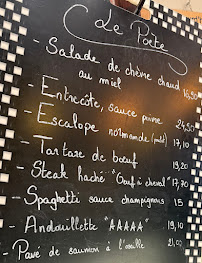 Le Poète
- Salade de chèvre chaud
au miel 16,90
- Entrecôte, sauce poivre 24,50
- Escalope normande (midi) 17,10
- Tartare de bœuf 19,20
- Steak haché "Œuf à cheval" 17,70
- Spaghetti sauce champignons 15
- Andouillette "AAAAA" 19,10
- Pavé de saumon à l'oseille 21,00